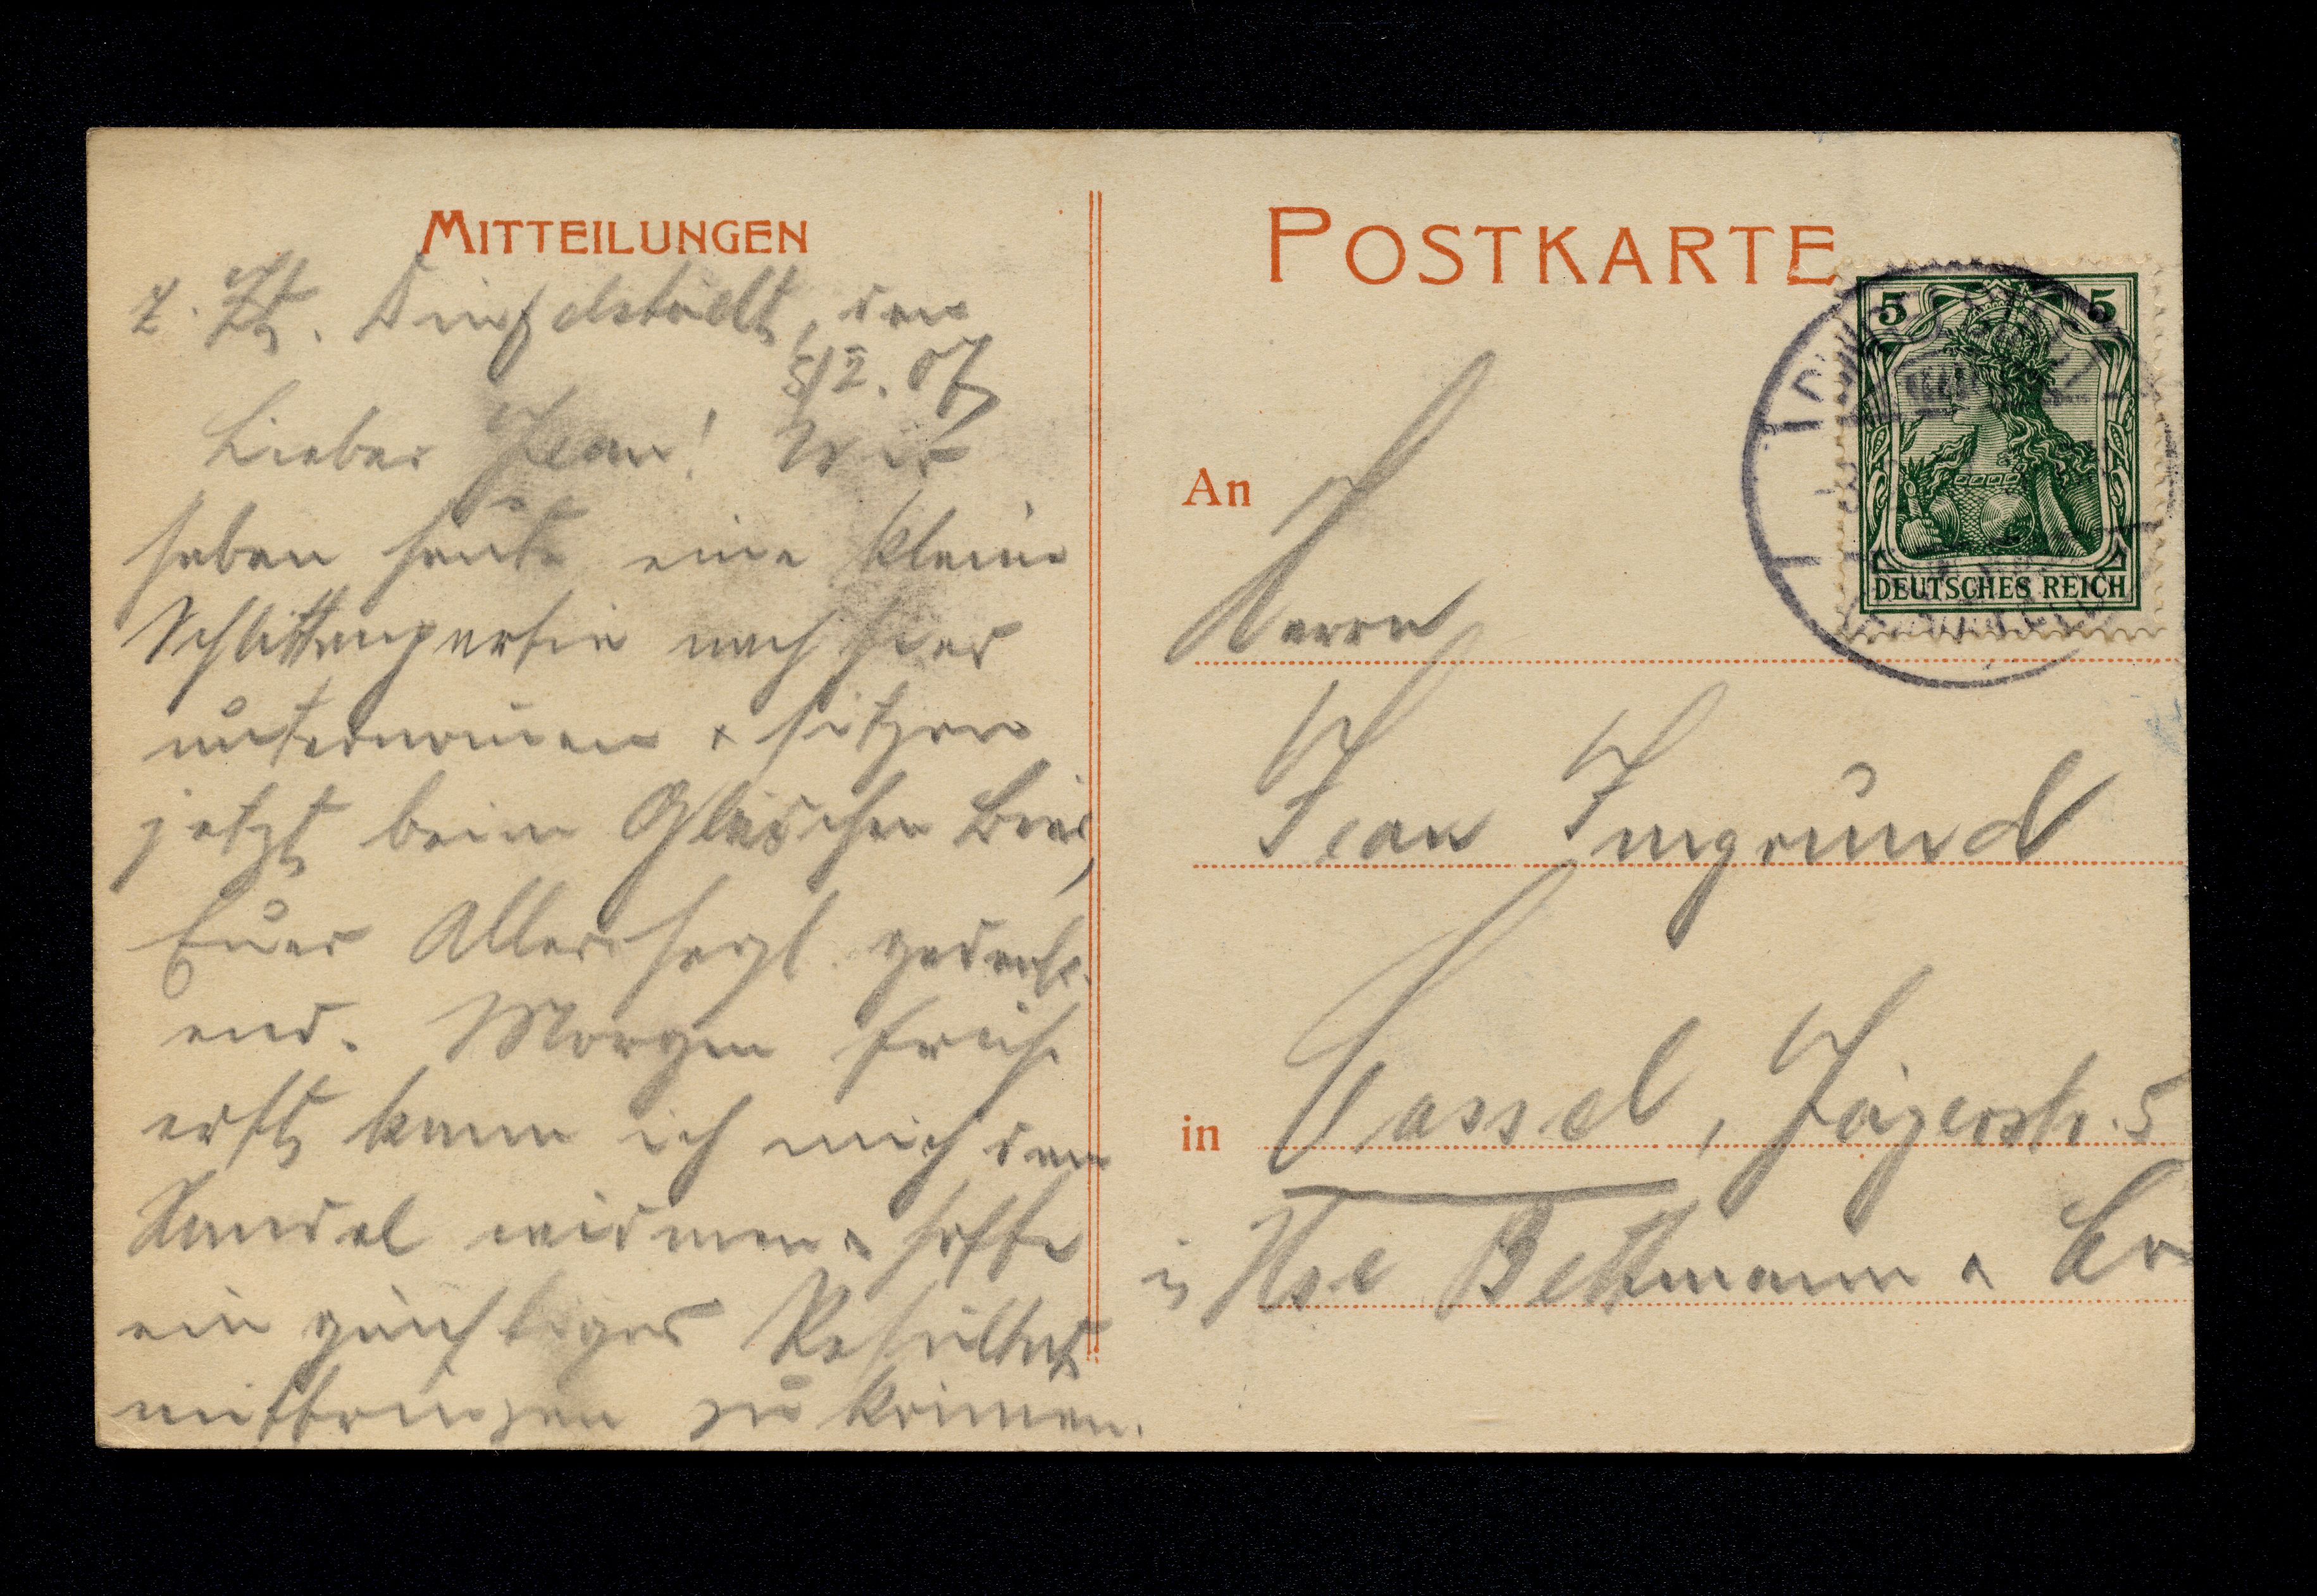 MITTEILUNGEN
z. Zt. Dingelstädt, den
5/2. 07
Lieber Jean! Wir
haben heute eine kleine
Schlittenpartie nach hier
unternom̄en & sitzen
jetzt beim Gläschen Bier,
Euer Aller herzl. gedenk-
end. Morgen früh
erst kann ich mich dem
Handel widmen & hoffe
ein günstiges Resultat
mitbringen zu können.
POSTKARTE
5 5
DEUTSCHES REICH
An
Herrn
Jean Imgrund
in Cassel, Jägerstr. 5
Hse Bettmann &